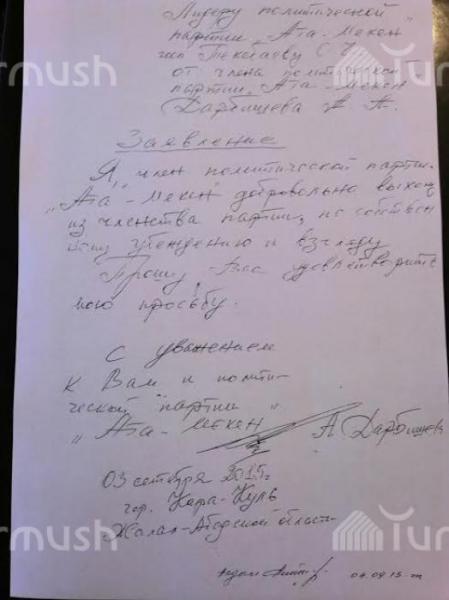 Лидеру политической
партии „Ата-Мекен"
Текебаеву
от члена политической
партии „Ата-Мекен
Дарбишева А. А.
Заявление
Я, член политической партии
„Ата-Мекен" добровольно выхожу
из членства партии, по собствен
ному убеждению и взгляду
Прошу Вас удовлетворить
мою просьбу.
С уважением
к Вам и полити-
ческой партии
„Ата-Мекен
А Дарбишев
03 сентября 2015г
гор. Кара-Куль
Жалал-Абадской област
04.09.15-г
Turmush